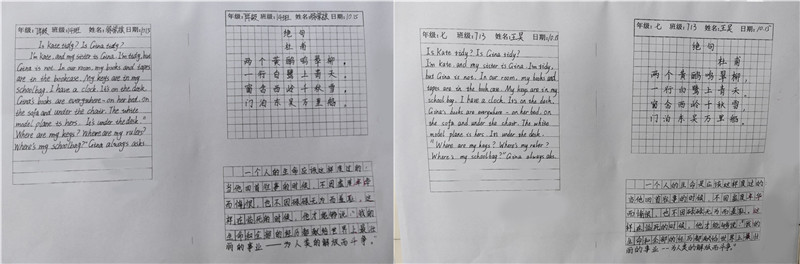 年级: 班级: 姓名: 日期:
Is Kate tidy? Is Gina tidy?
I'm Kate, and my sister is Gina. I'm tidy, but
Gina is not. In our room, my books and tapes
are in the bookcase. My keys are in my
schoolbag. I have a clock. It's on the desk.
Gina's books are everywhere - on her bed, on
the sofa and under the chair. The white
model plane is hers. It's under the desk."
Where are my keys? Where are my rulers?
Where's my schoolbag?" Gina always asks.
年级: 班级: 姓名: 日期:
绝句
杜甫
两个黄鹂鸣翠柳,
一行白鹭上青天。
窗含西岭千秋雪,
门泊东吴万里船。
一个人的生命应该这样度过的:
当他回首往事的时候,不因虚度年华
而悔恨,也不因碌碌无为而羞耻,这
样在临死的时候,他才能够说:"我的
生命和全部的经历都献给世界上最壮
丽的事业——为人类的解放而斗争。"
年级:七 班级:713 姓名:王昊 日期:10.15
Is Kate tidy? Is Gina tidy?
I'm Kate, and my sister is Gina. I'm tidy,
but Gina is not. In our room, my books and
tapes are in the bookcase. My keys are in my
school bag. I have a clock. It's on the desk.
Gina's books are everywhere - on her bed, on
the sofa and under the chair. The white
model plane is hers. It's under the desk.
"Where are my keys? Where's my ruler?
Where's my schoolbag?" Gina always asks.
年级:七 班级:713 姓名:王昊 日期:10.15
绝句
杜甫
两个黄鹂鸣翠柳,
一行白鹭上青天。
窗含西岭千秋雪,
门泊东吴万里船。
一个人的生命是应该这样度过的
当他回首往事的时候,不因虚度年华
而悔恨,也不因碌碌无为而羞耻,这
样在临死的时候,他才能够说:"我的
生命和全部的经历都献给世界上最壮
丽的事业——为人类的解放而斗争。"